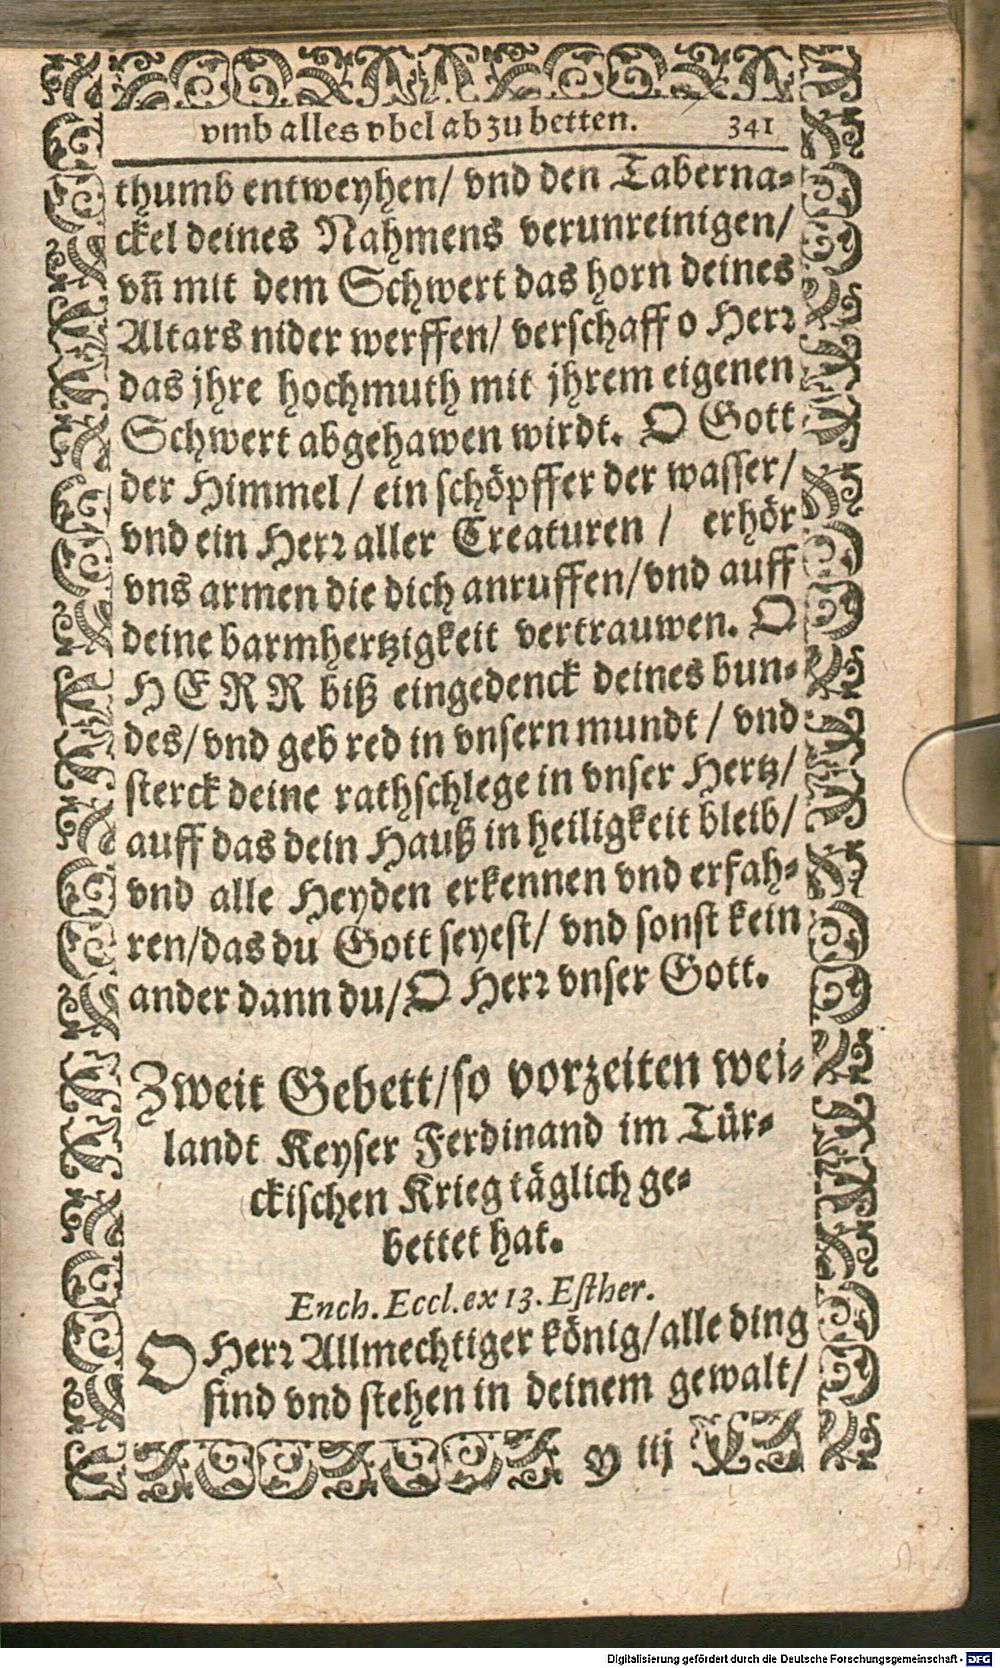 vmb alles vbel ab zu betten. 341
thumb entweyhen/ vnd den Taberna-
ckel deines Nahmens verunreinigen/
vñ mit dem Schwert das horn deines
Altars nider werffen/ verschaff o Herr
das jhre hochmuth mit jhrem eigenen
Schwert abgehawen wirdt. O Gott
der Himmel / ein schöpffer der wasser/
vnd ein Herr aller Creaturen / erhör
vns armen die dich anruffen/ vnd auff
deine barmhertzigkeit vertrauwen. O
HERR biß eingedenck deines bun-
des/ vnd geb red in vnsern mundt / vnd
sterck deine rathschlege in vnser Hertz/
auff das dein Hauß in heiligkeit bleib/
vnd alle Heyden erkennen vnd erfah-
ren/ das du Gott seyest/ vnd sonst kein
ander dann du/ O Herr vnser Gott.
Zweit Gebett/ so vorzeiten wei-
landt Keyser Ferdinand im Tür-
ckischen Krieg täglich ge-
bettet hat.
Ench. Eccl. ex 13. Esther.
O Herr Allmechtiger könig/ alle ding
sind vnd stehen in deinem gewalt/
y iij
Digitalisierung gefördert durch die Deutsche Forschungsgemeinschaft - DFG